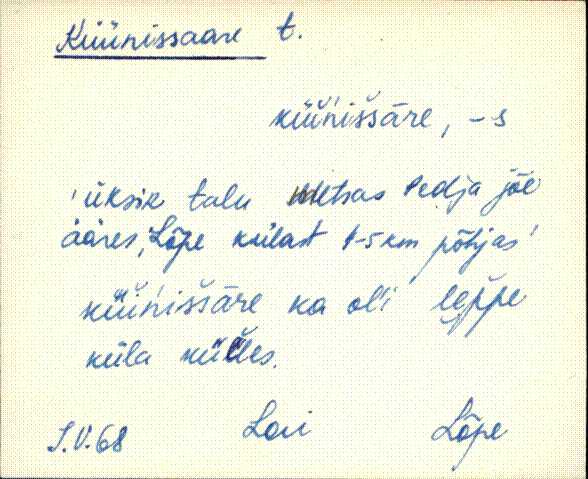 Küünissaare t.
küünišsāre, -s
'üksik talu metsas Pedja jõe
ääres, Lõpe külast 4-5 km põhjas'
küünišsāre ka olli leppe
küla külles.
S.V.68 Lari Lõpe